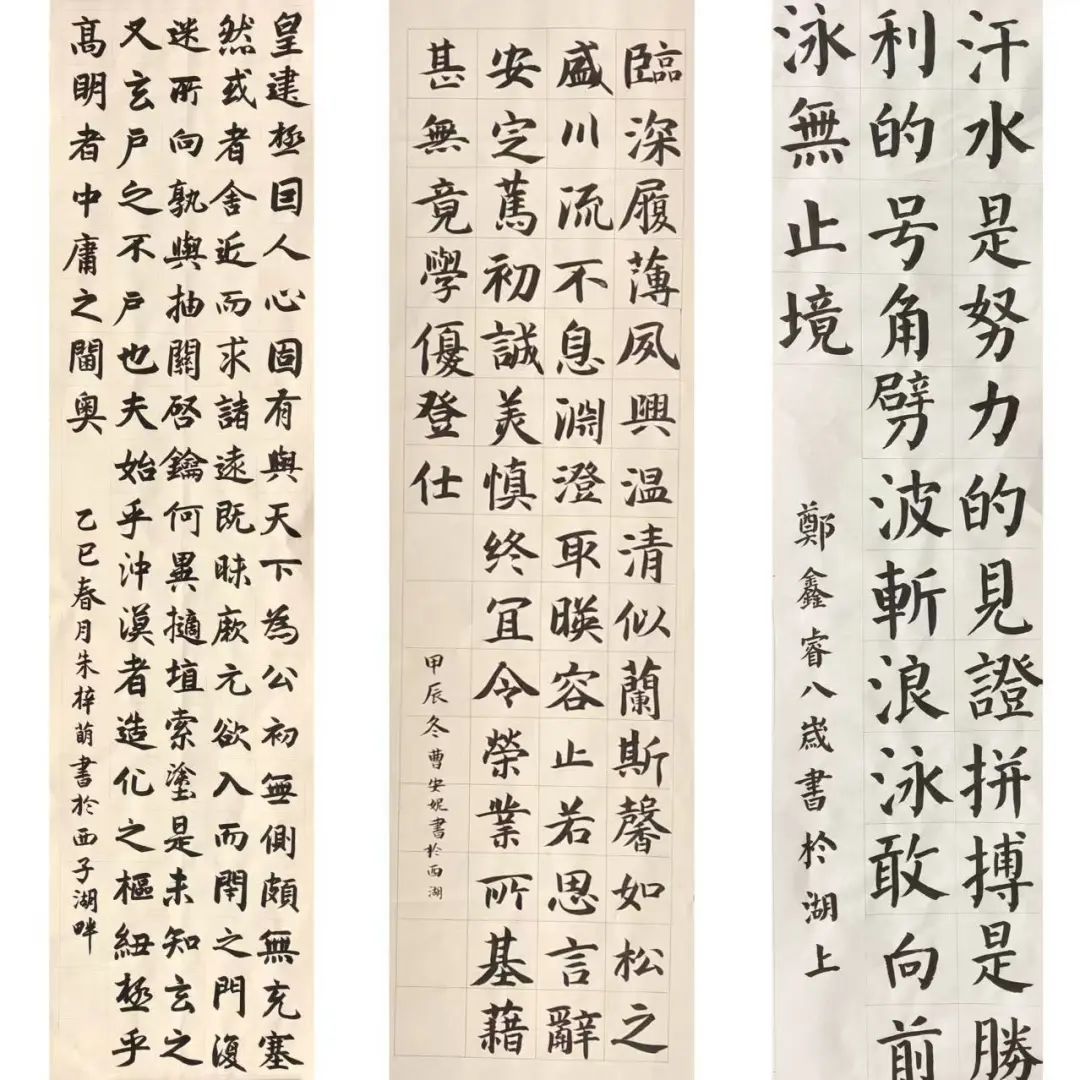 皇建極囙人心固有與天下為公初無側頗無充塞
然或者舍近而求諸遠既昧厥元欲入而閉之門復
迷所向孰與抽關啓鑰何異擿埴索塗是未知玄之
又玄戶之不戶也夫始乎沖漠者造化之樞紐極乎
高明者中庸之閫奥
乙巳春月朱梓萌書於西子湖畔
臨深履薄夙興温清似蘭斯馨如松之
盛川流不息淵澄取暎容止若思言辭
安定篤初誠美慎終宜令榮業所基藉
甚無竟學優登仕
甲辰冬曹安妮書於西湖
汗水是努力的見證拼搏是勝
利的号角劈波斬浪泳敢向前
泳無止境
鄭鑫睿八歲書於湖上